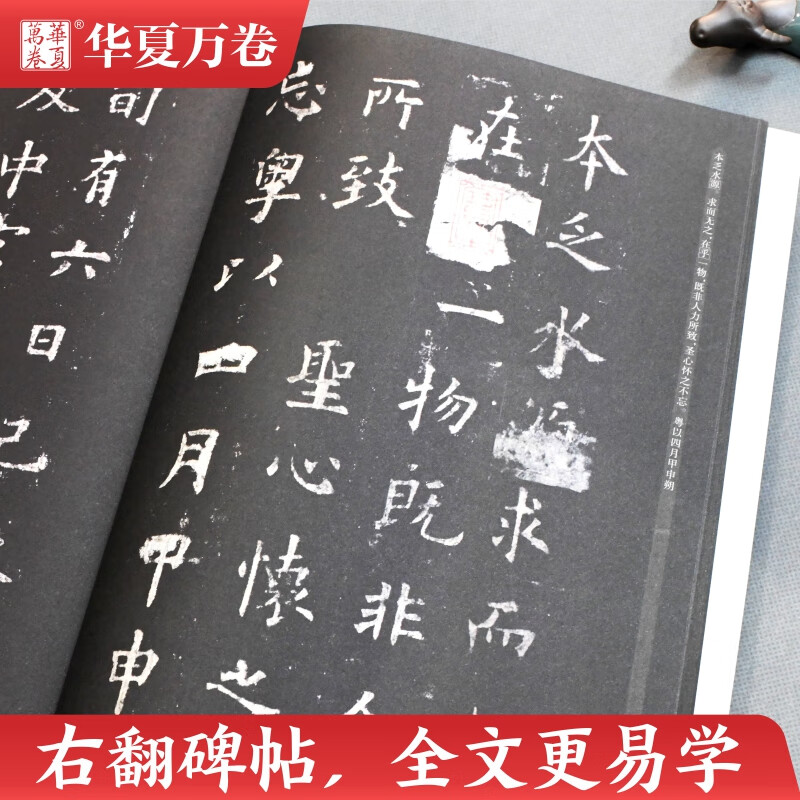 華夏萬卷
®
华夏万卷
本乏水源。求而无之，在乎一物，既非人力所致，圣心怀之不忘。粤以四月甲申朔
本乏水求而
在一物既非人
所致聖心懷之
忘粵以四月甲申
旬有六日
及中
右翻碑帖，全文更易学